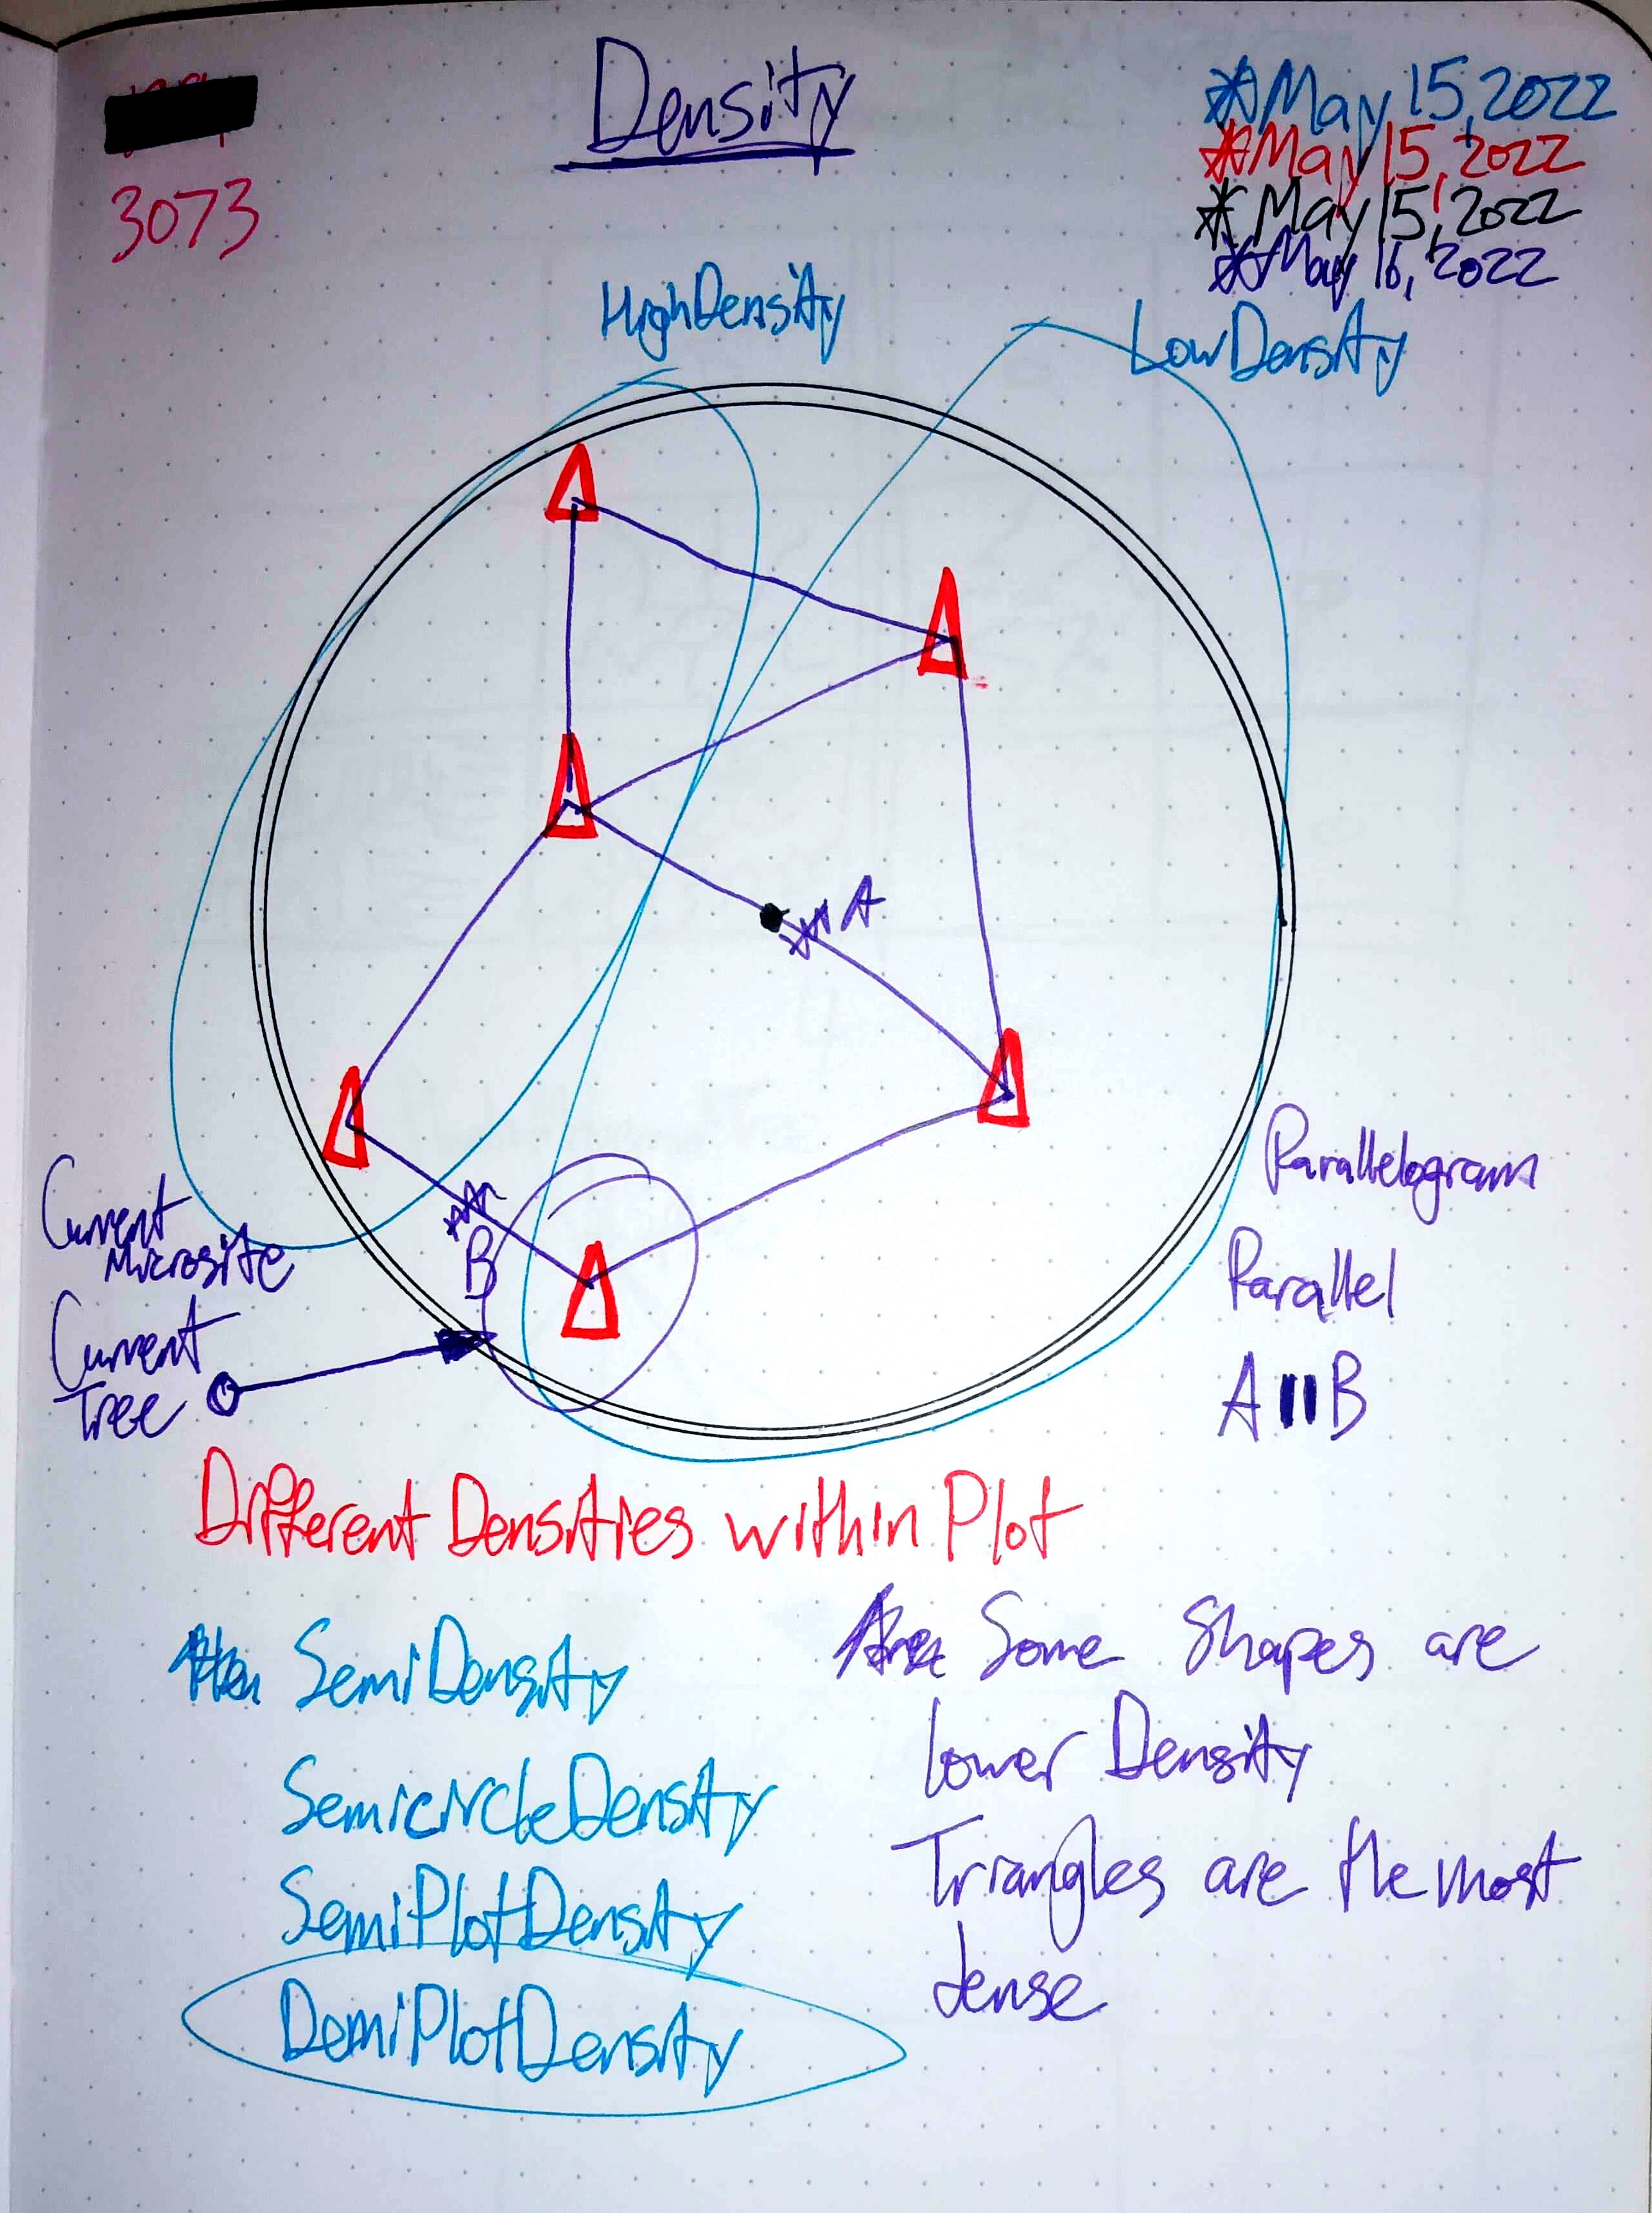 Density
*May 15, 2022
*May 15, 2022
*May 15, 2022
*May 16, 2022
3073
HighDensity
LowDensity
A
B
Current
Microsite
Current
Tree
Parallelogram
Parallel
A || B
Different Densities within Plot
SemiDensity
SemicircleDensity
SemiPlotDensity
DemiPlotDensity
Some Shapes are
lower Density
Triangles are the most
dense